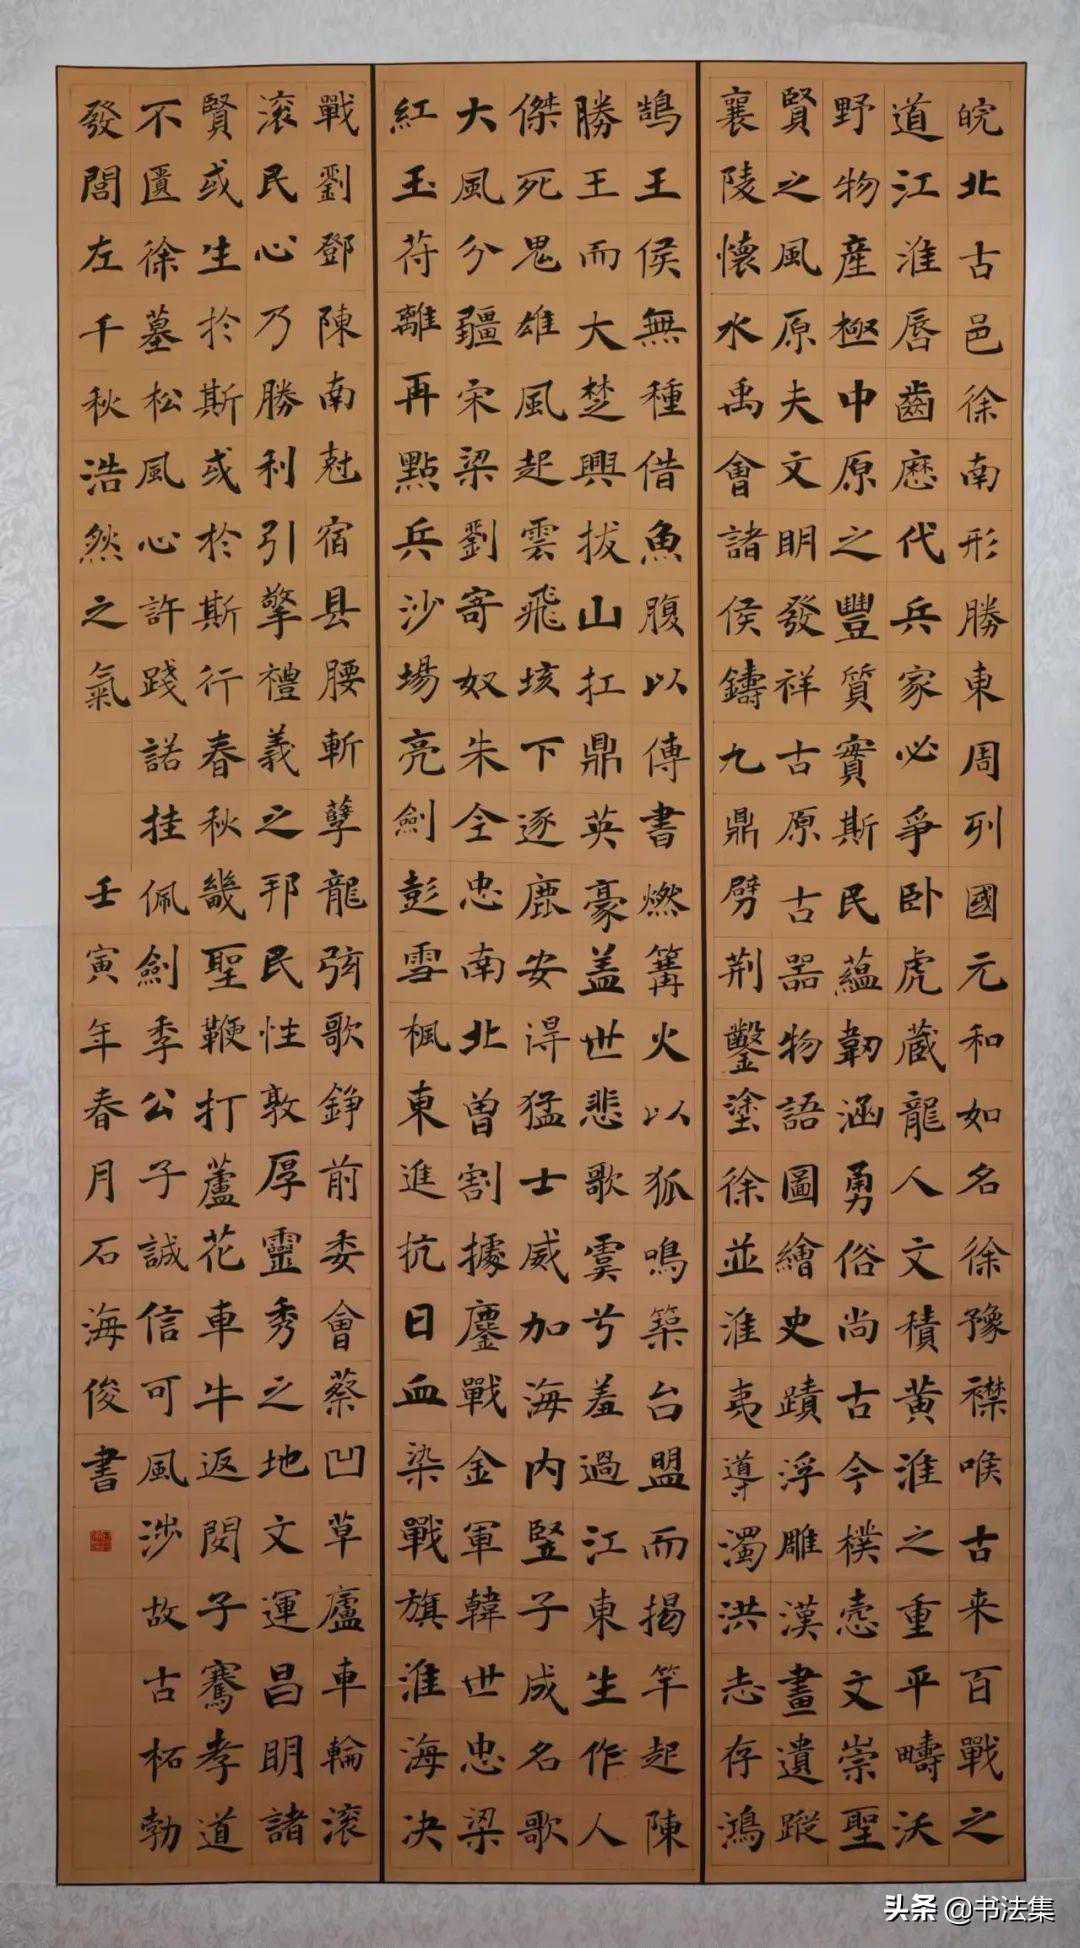 皖北古邑徐南形勝東周列國元和如名徐豫襟喉古来百戰之
道江淮唇齒歷代兵家必爭卧虎藏龍人文積黄淮之重平疇沃
野物產極中原之豐質實斯民蘊韌涵勇俗尚古今樸悫文崇聖
賢之風原夫文明發祥古原古器物語圖繪史蹟浮雕漢畫遺蹤
襄陵懷水禹會諸侯鑄九鼎劈荆鑿塗徐並淮夷導濁洪志存鴻
鵠王侯無種借魚腹以傳書燃篝火以狐鳴築台盟而揭竿起陳
勝王而大楚興拔山扛鼎英豪盖世悲歌虞兮羞過江東生作人
傑死鬼雄風起雲飛垓下逐鹿安得猛士威加海内竪子成名歌
大風分疆宋梁劉寄奴朱全忠南北曾割據鏖戰金軍韓世忠梁
紅玉苻離再點兵沙場亮劍彭雪楓東進抗日血染戰旗淮海决
戰劉鄧陳南尅宿县腰斬孽龍弦歌錚前委會蔡凹草廬車輪滚
滚民心乃勝利引擎禮義之邦民性敦厚靈秀之地文運昌明諸
賢或生於斯或於斯行春秋畿聖鞭打蘆花車牛返閔子騫孝道
不匱徐墓松風心許踐諾挂佩劍季公子誠信可風涉故古柘勃
發閭左千秋浩然之氣 壬寅年春月石海俊書
头条 @书法集